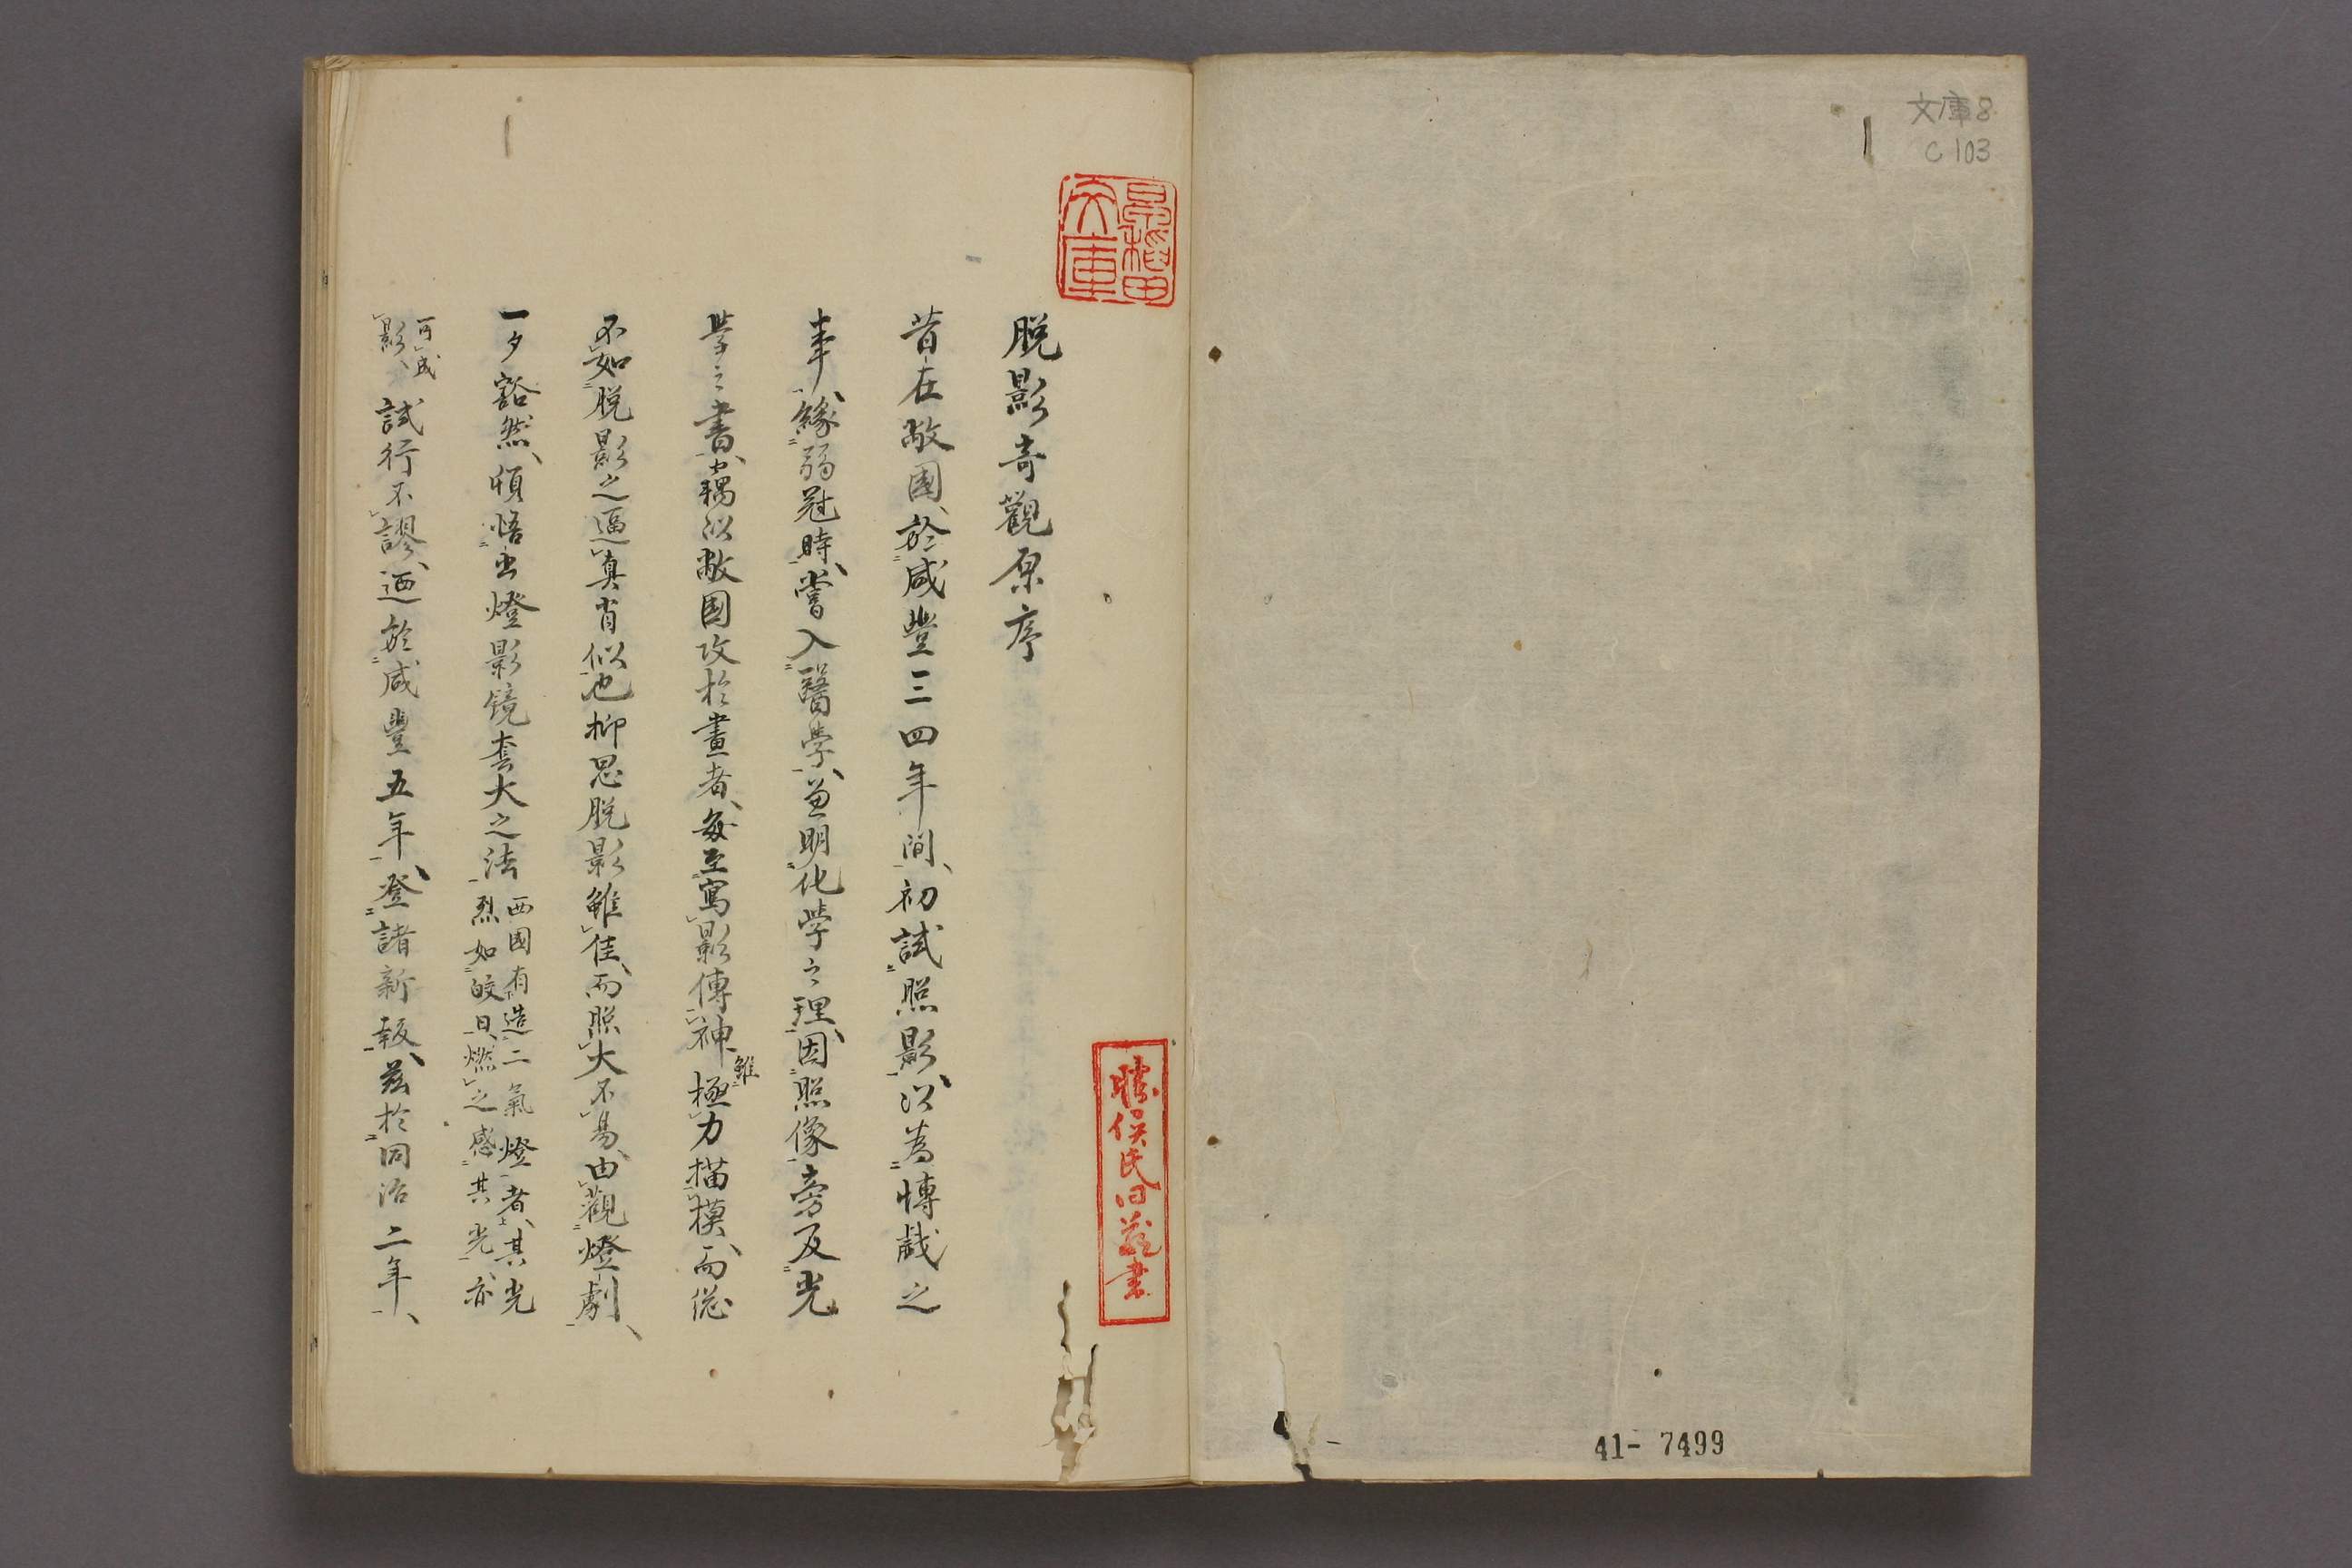 文庫8
C 103
41- 7499
早稲田文庫
勝俣氏旧蔵書
脱影奇觀原序
昔在敝國於咸豐三四年間、初試照影、以為博戲之
事、緣弱冠時、嘗入醫學、兼明化學之理、因照像旁及光
學之書、偶以敝国攻於畫者、每至寫影傳神、雖極力描摸、而總
不如脱影之逼真肖似也抑思脱影雖佳、而照大不易、由觀燈劇、
一夕豁然、頓悟出燈影鏡套大之法
西國有造二氣燈者、其光
烈如皎日、燃之感其光、亦
可成
影、
試行不謬、迺於咸豐五年、登諸新報、茲於同治二年、